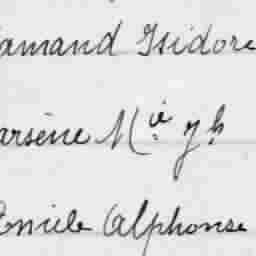 amand Isidore
arsène M^ie J^h
Emile Alphonse